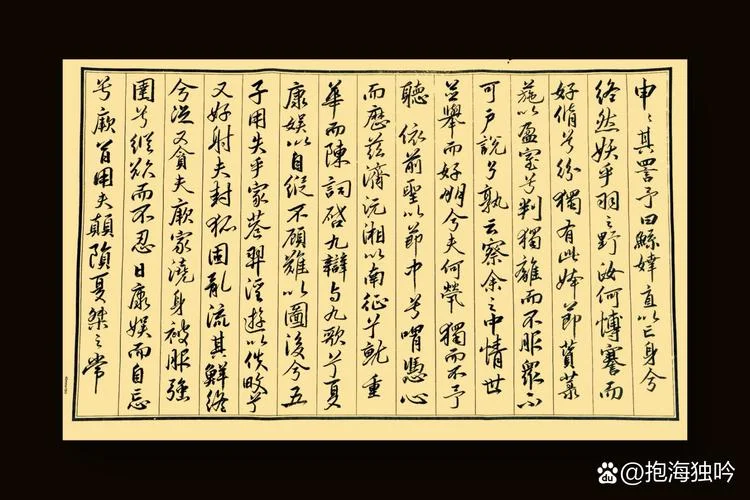 申〻其詈予曰鯀婞直以亡身兮
終然妖乎羽之野汝何博謇而
好脩兮紛獨有此姱節薋菉
葹以盈室兮判獨離而不服眾不
可戶說兮孰云察余之中情世
並舉而好朋兮夫何煢獨而不予
聽依前聖以節中兮喟憑心
而歷茲濟沅湘以南征兮就重
華而陳詞啟九辯與九歌兮夏
康娛以自縱不顧難以圖後兮五
子用失乎家巷羿淫遊以佚畋兮
又好射夫封狐固亂流其鮮終
兮浞又貪夫厥家澆身被服強
圉兮縱欲而不忍日康娛而自忘
兮厥首用夫顛隕夏桀之常
du @抱海独吟